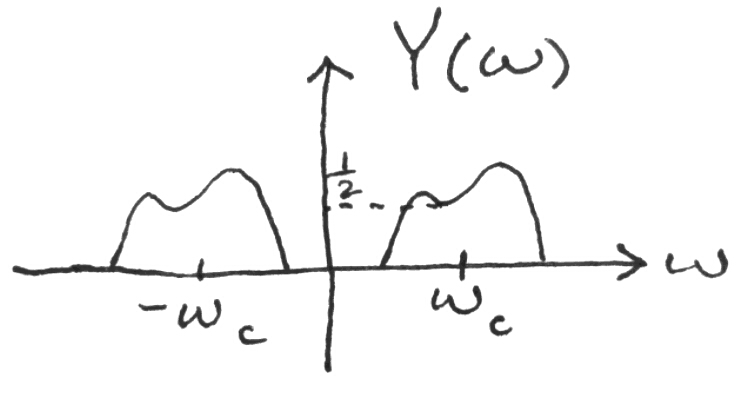 Y(ω)
1/2
ω
-ω_c
ω_c